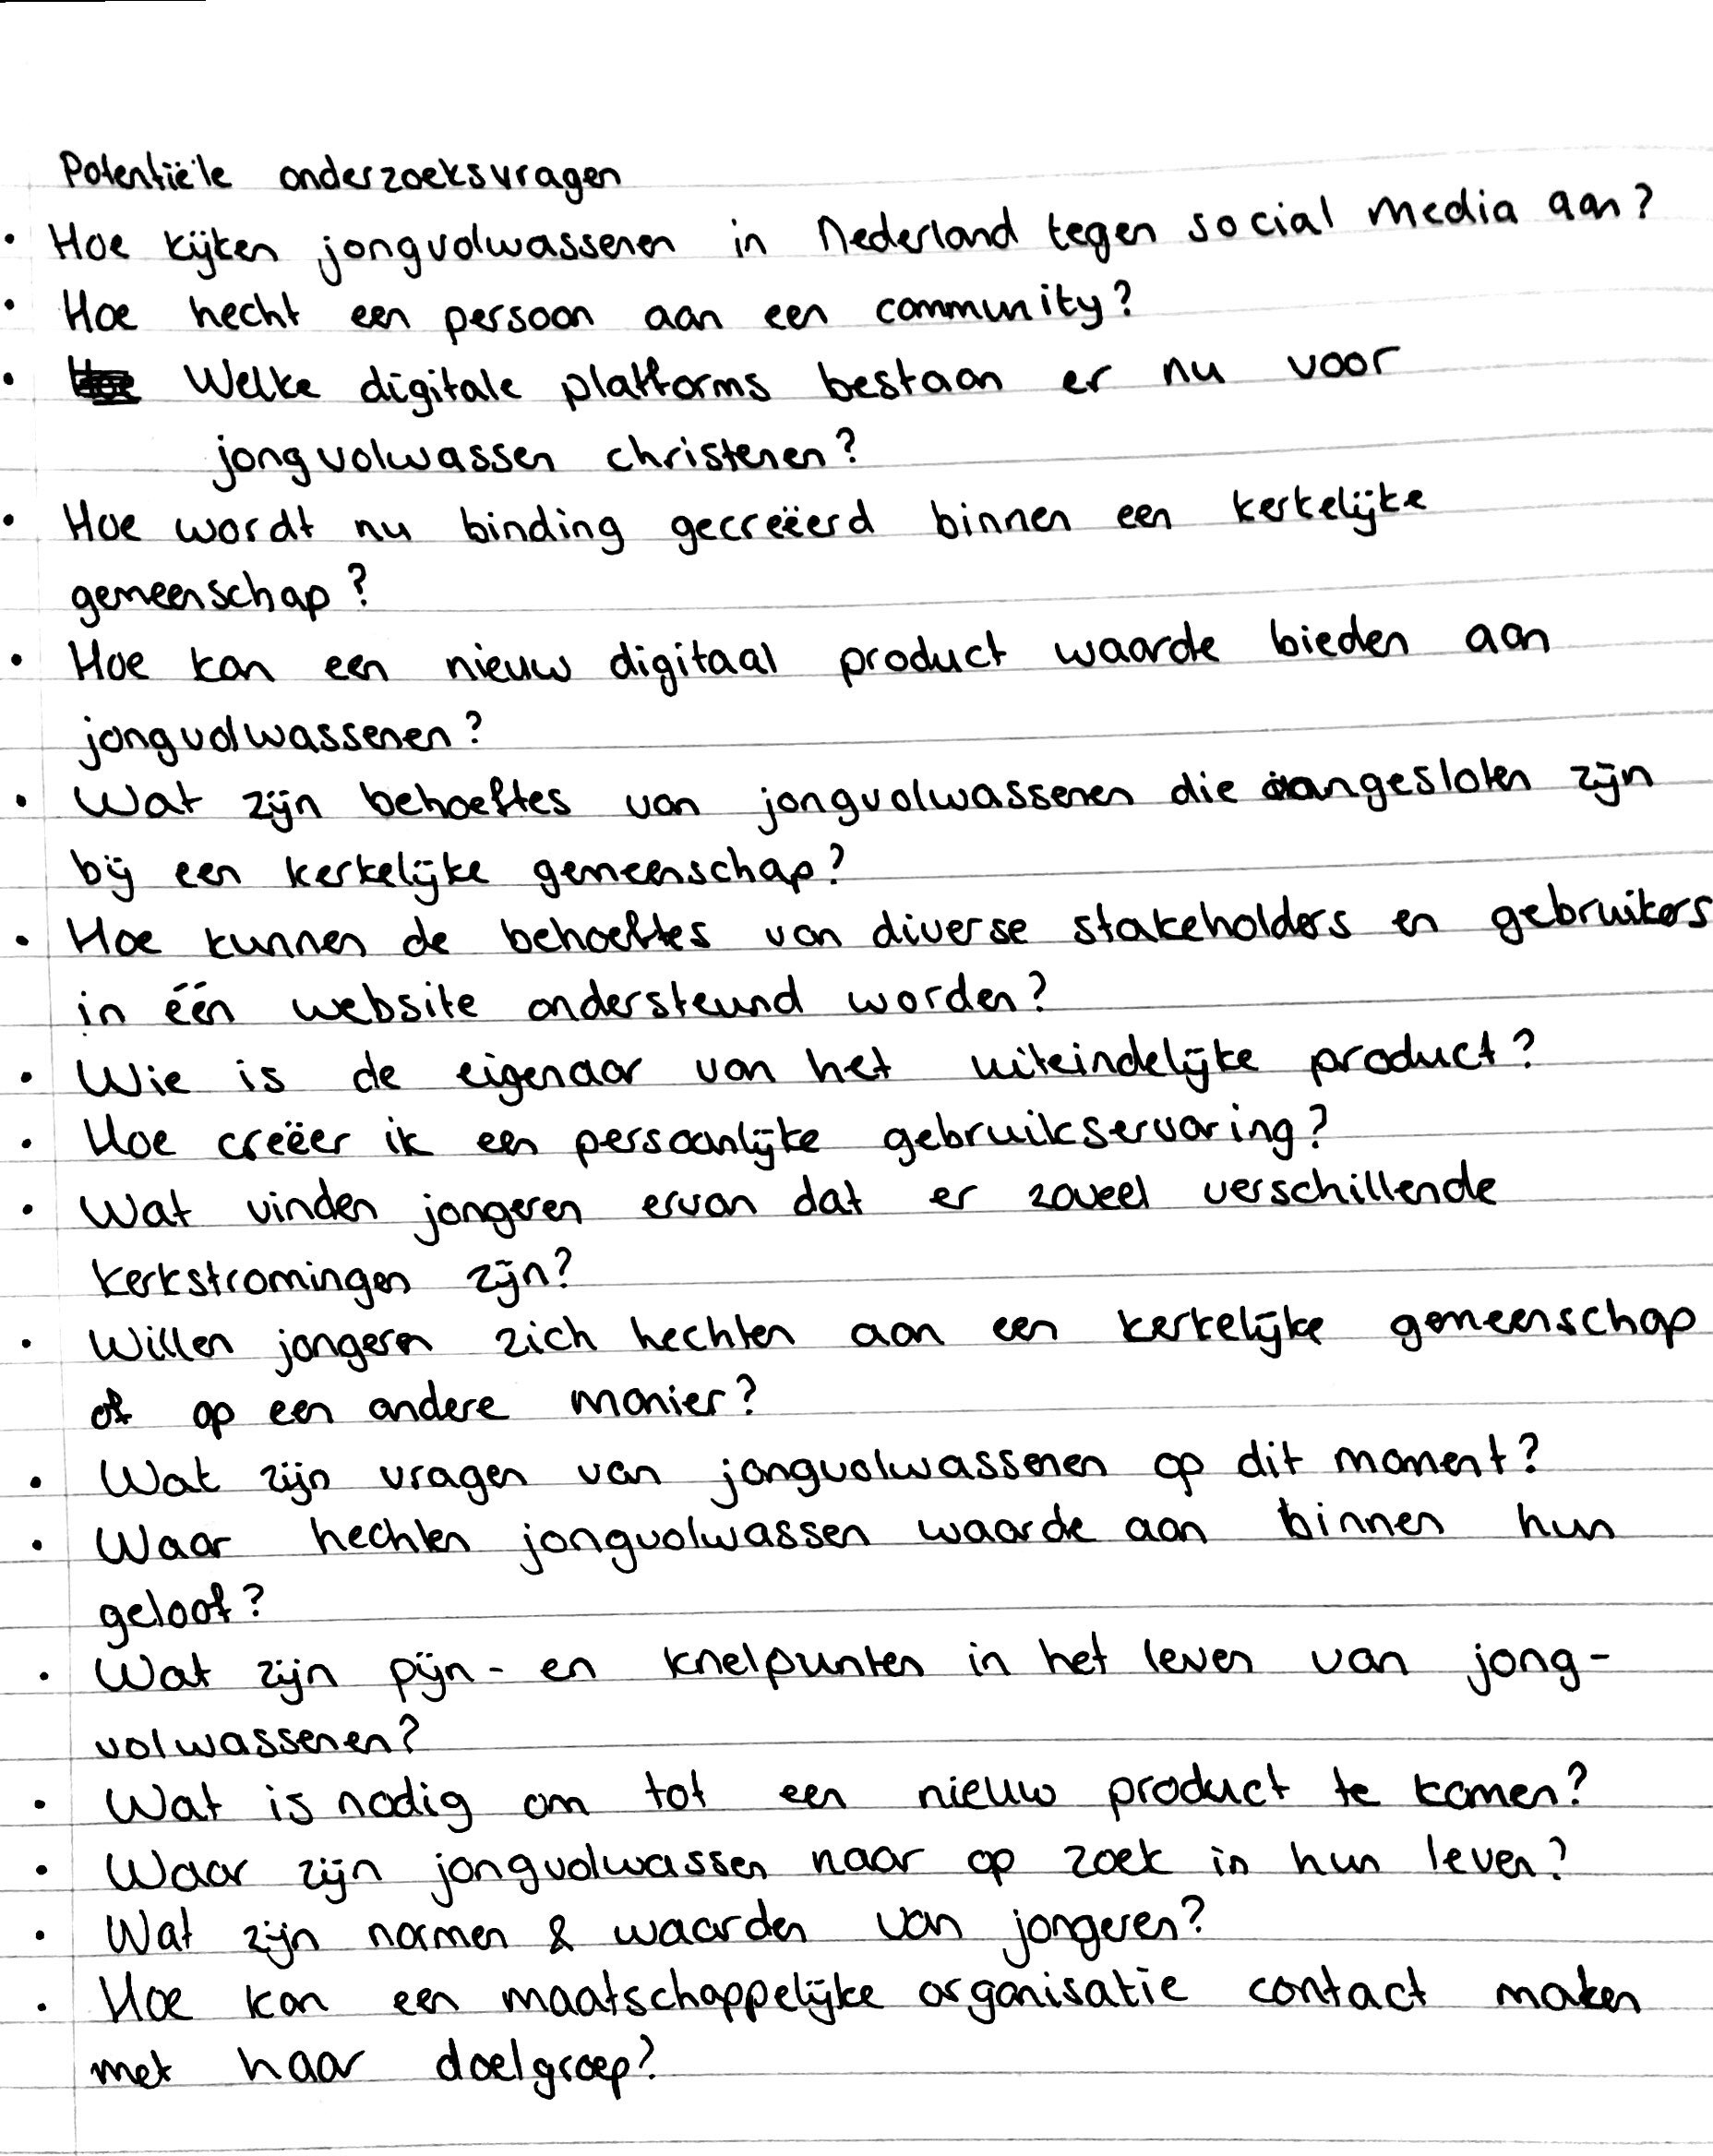 Potentiële onderzoeksvragen
• Hoe kijken jongvolwassenen in Nederland tegen social media aan?
• Hoe hecht een persoon aan een community?
• Hoe Welke digitale platforms bestaan er nu voor
jongvolwassen christenen?
• Hoe wordt nu binding gecreëerd binnen een kerkelijke
gemeenschap?
• Hoe kan een nieuw digitaal product waarde bieden aan
jongvolwassenen?
• Wat zijn behoeftes van jongvolwassenen die aangesloten zijn
bij een kerkelijke gemeenschap?
• Hoe kunnen de behoeftes van diverse stakeholders en gebruikers
in één website ondersteund worden?
• Wie is de eigenaar van het uiteindelijke product?
• Hoe creëer ik een persoonlijke gebruikservaring?
• Wat vinden jongeren ervan dat er zoveel verschillende
kerkstromingen zijn?
• Willen jongeren zich hechten aan een kerkelijke gemeenschap
of op een andere manier?
• Wat zijn vragen van jongvolwassenen op dit moment?
• Waar hechten jongvolwassen waarde aan binnen hun
geloof?
• Wat zijn pijn- en knelpunten in het leven van jong-
volwassenen?
• Wat is nodig om tot een nieuw product te komen?
• Waar zijn jongvolwassen naar op zoek in hun leven?
• Wat zijn normen & waarden van jongeren?
• Hoe kan een maatschappelijke organisatie contact maken
met haar doelgroep?